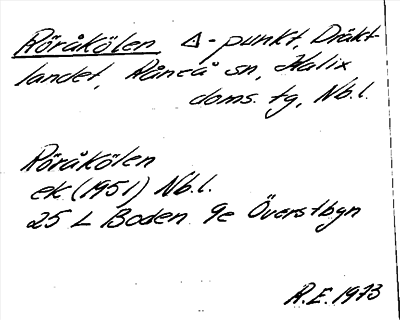 Röråkölen Δ-punkt, Dråkt-
landet, Råneå sn, Kalix
doms. tg, Nb.l.
Röråkölen
ek (1951) Nb.l.
25 L Boden 9e Överstbyn
R.E. 1973